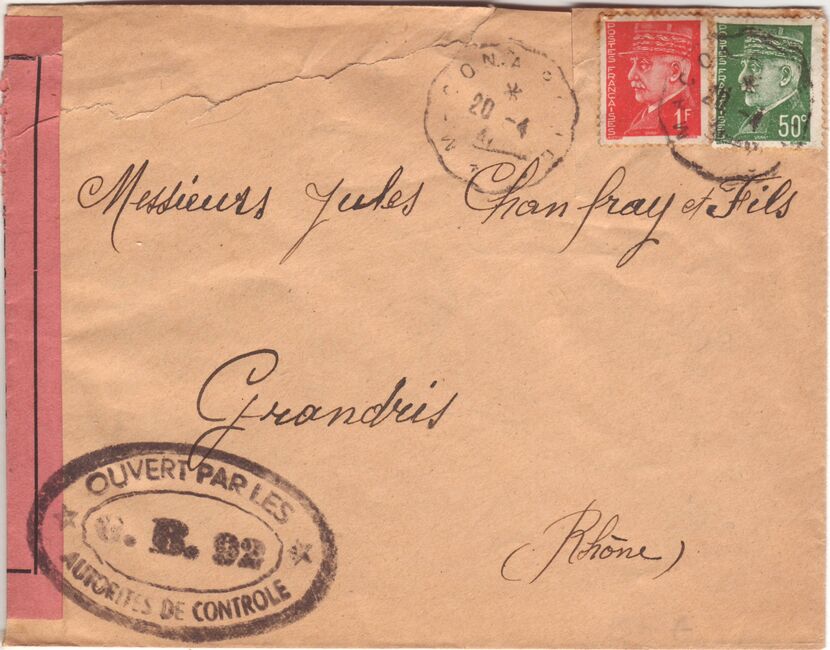 20 -4
POSTES FRANÇAISES
1F
POSTES FRANÇAISES
50c
Messieurs Jules Chanfray et Fils
Grandris
(Rhône)
OUVERT PAR LES
92
AUTORITÉS DE CONTROLE